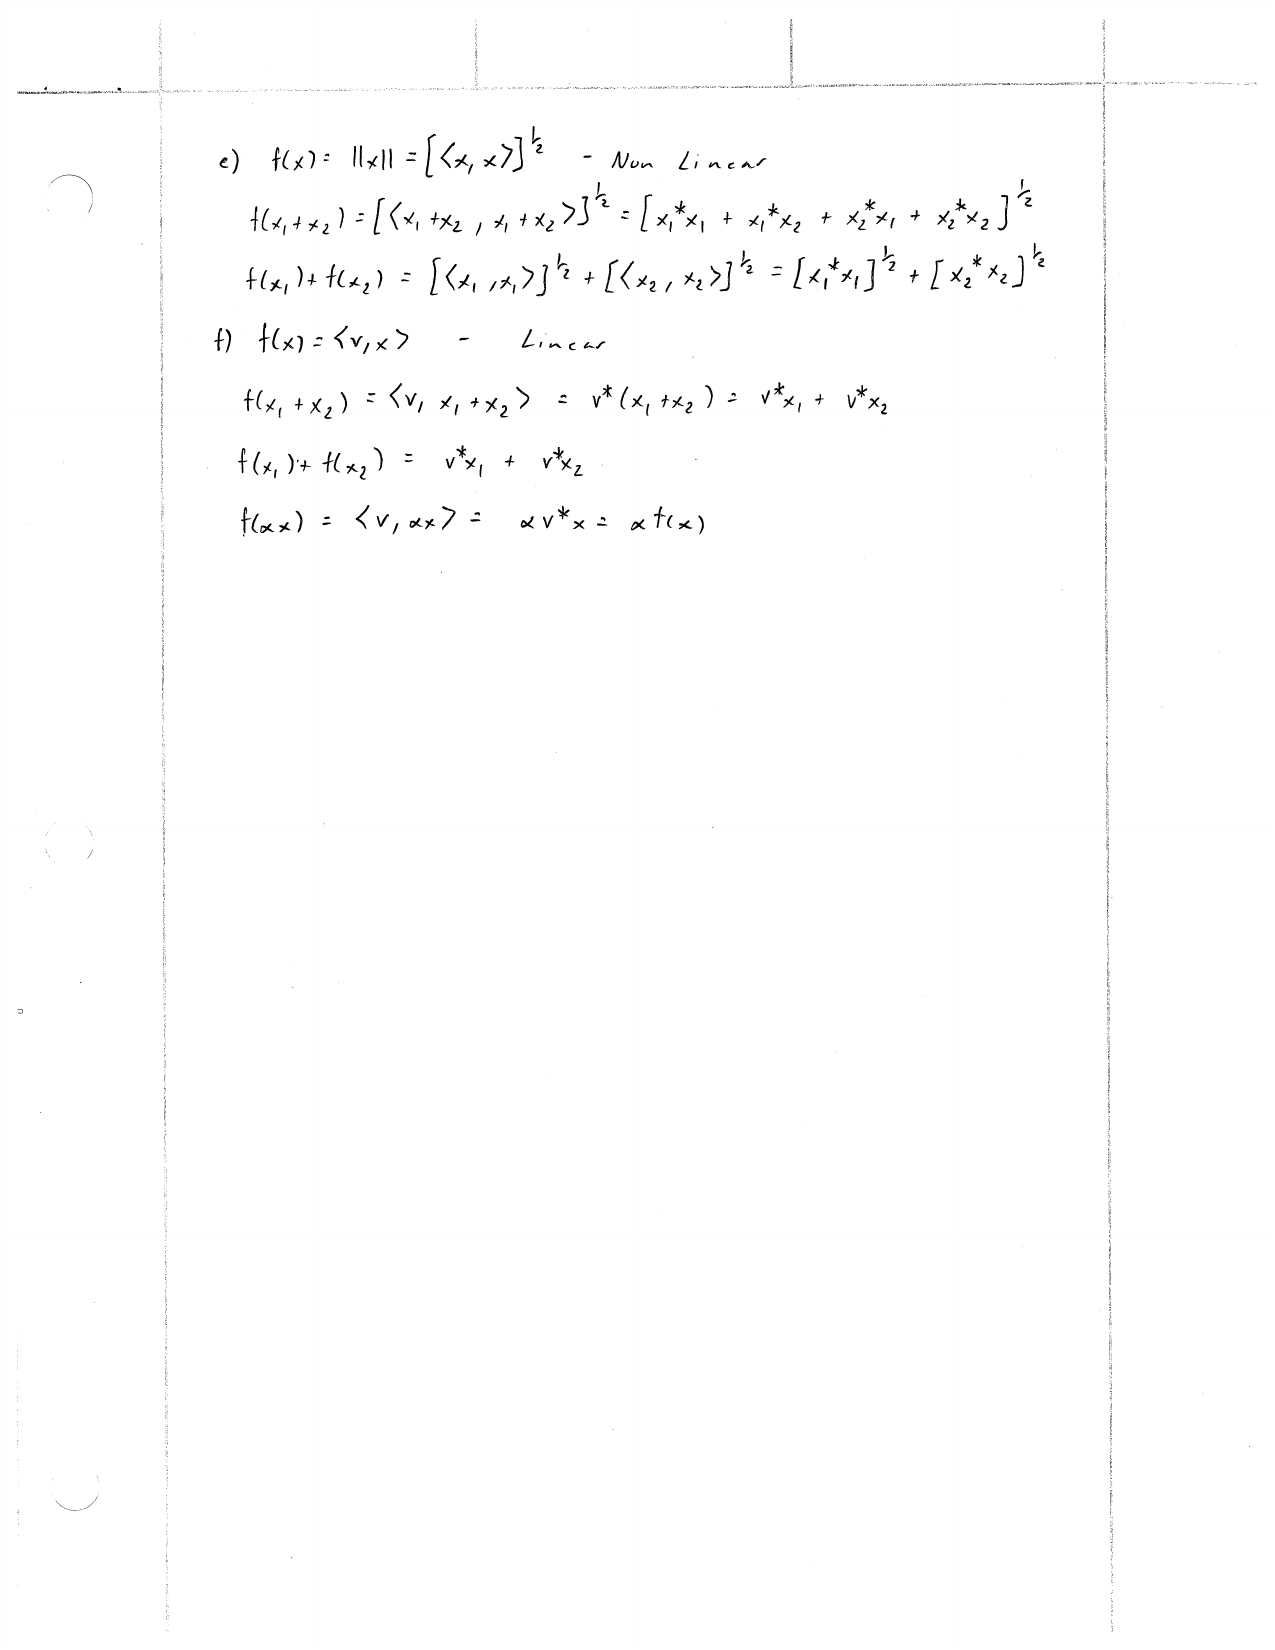 e) f(x) = ||x|| = [<x, x>]^{1/2} - Non Linear
f(x₁ + x₂) = [<x₁ + x₂ , x₁ + x₂>]^{1/2} = [x₁*x₁ + x₁*x₂ + x₂*x₁ + x₂*x₂]^{1/2}
f(x₁) + f(x₂) = [<x₁ , x₁>]^{1/2} + [<x₂, x₂>]^{1/2} = [x₁*x₁]^{1/2} + [x₂*x₂]^{1/2}
f) f(x) = <v, x> - Linear
f(x₁ + x₂) = <v, x₁ + x₂> = v*(x₁ + x₂) = v*x₁ + v*x₂
f(x₁) + f(x₂) = v*x₁ + v*x₂
f(αx) = <v, αx> = αv*x = αf(x)